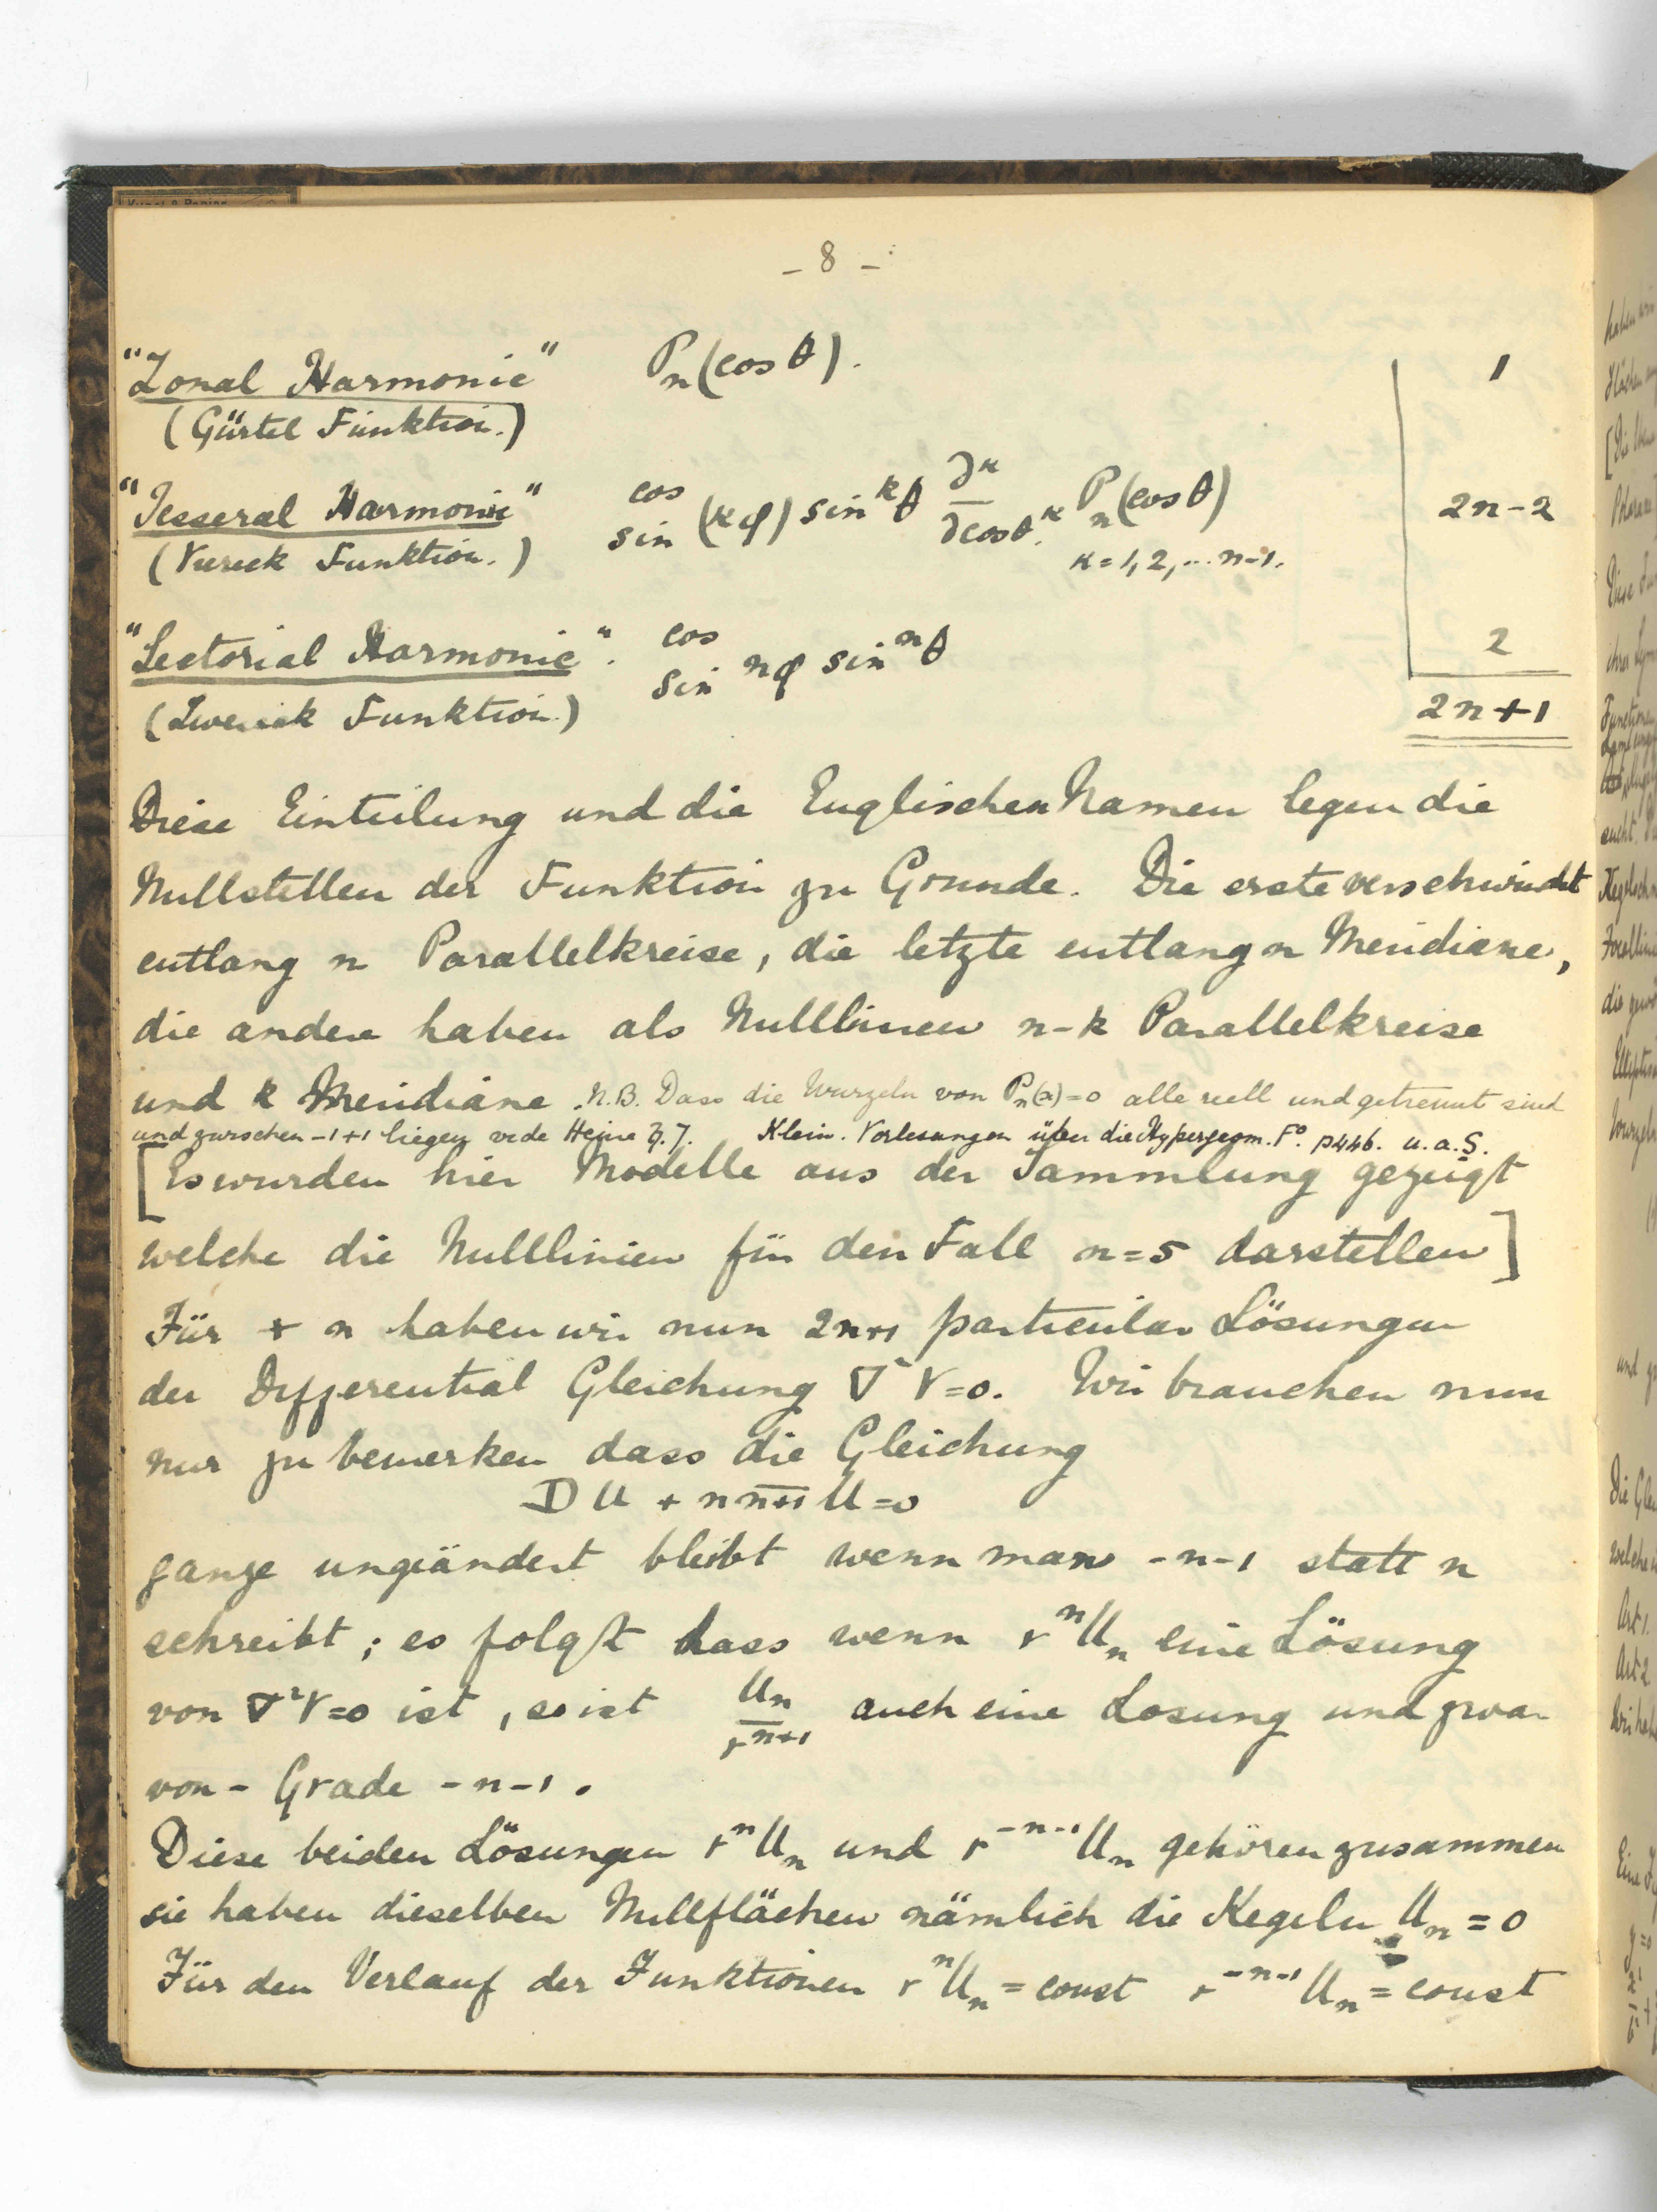 – 8 –
"Zonal Harmonic" P_n(cos θ). 1
(Gürtel Funktion.)
"Tesseral Harmonic" cos sin (κφ) sin^k θ ∂^κ/∂cosθ^κ P_n(cos θ) 2n-2
(Viereck Funktion.) κ=1,2,...n-1.
"Sectorial Harmonic". cos sin nφ sin^n θ 2
(Zweieck Funktion.) 2n+1
Diese Einteilung und die Englischen Namen legen die
Nullstellen der Funktion zu Grunde. Die erste verschwindet
entlang n Parallelkreise, die letzte entlang n Meridiane,
die andere haben als Nulllinien n-k Parallelkreise
und k Meridiane. N.B. Dass die Wurzeln von P_n(x)=0 alle reell und getrennt sind
und zwischen -1+1 liegen vide Heine Klein. Vorlesungen über die Hypergeom. F^o. p446. u.a.S.
[Es wurden hier Modelle aus der Sammlung gezeigt
welche die Nulllinien für den Fall n=5 darstellen]
Für + n haben wir nun 2n+1 particular Lösungen
der Differential Gleichung ∇²V=0. Wir brauchen nun
nur zu bemerken dass die Gleichung
DU + n n+1 U=0
ganze ungeändert bleibt wenn man -n-1 statt n
schreibt; es folgt dass wenn r^n U_n eine Lösung
von ∇²V=0 ist, so ist U_n/r^{n+1} auch eine Losung und zwar
von - Grade -n-1.
Diese beiden Lösungen r^n U_n und r^{-n-1} U_n gehören zusammen
sie haben dieselben Nullflächen nämlich die Kegeln U_n=0
Für den Verlauf der Funktionen r^n U_n = const r^{-n-1} U_n = const